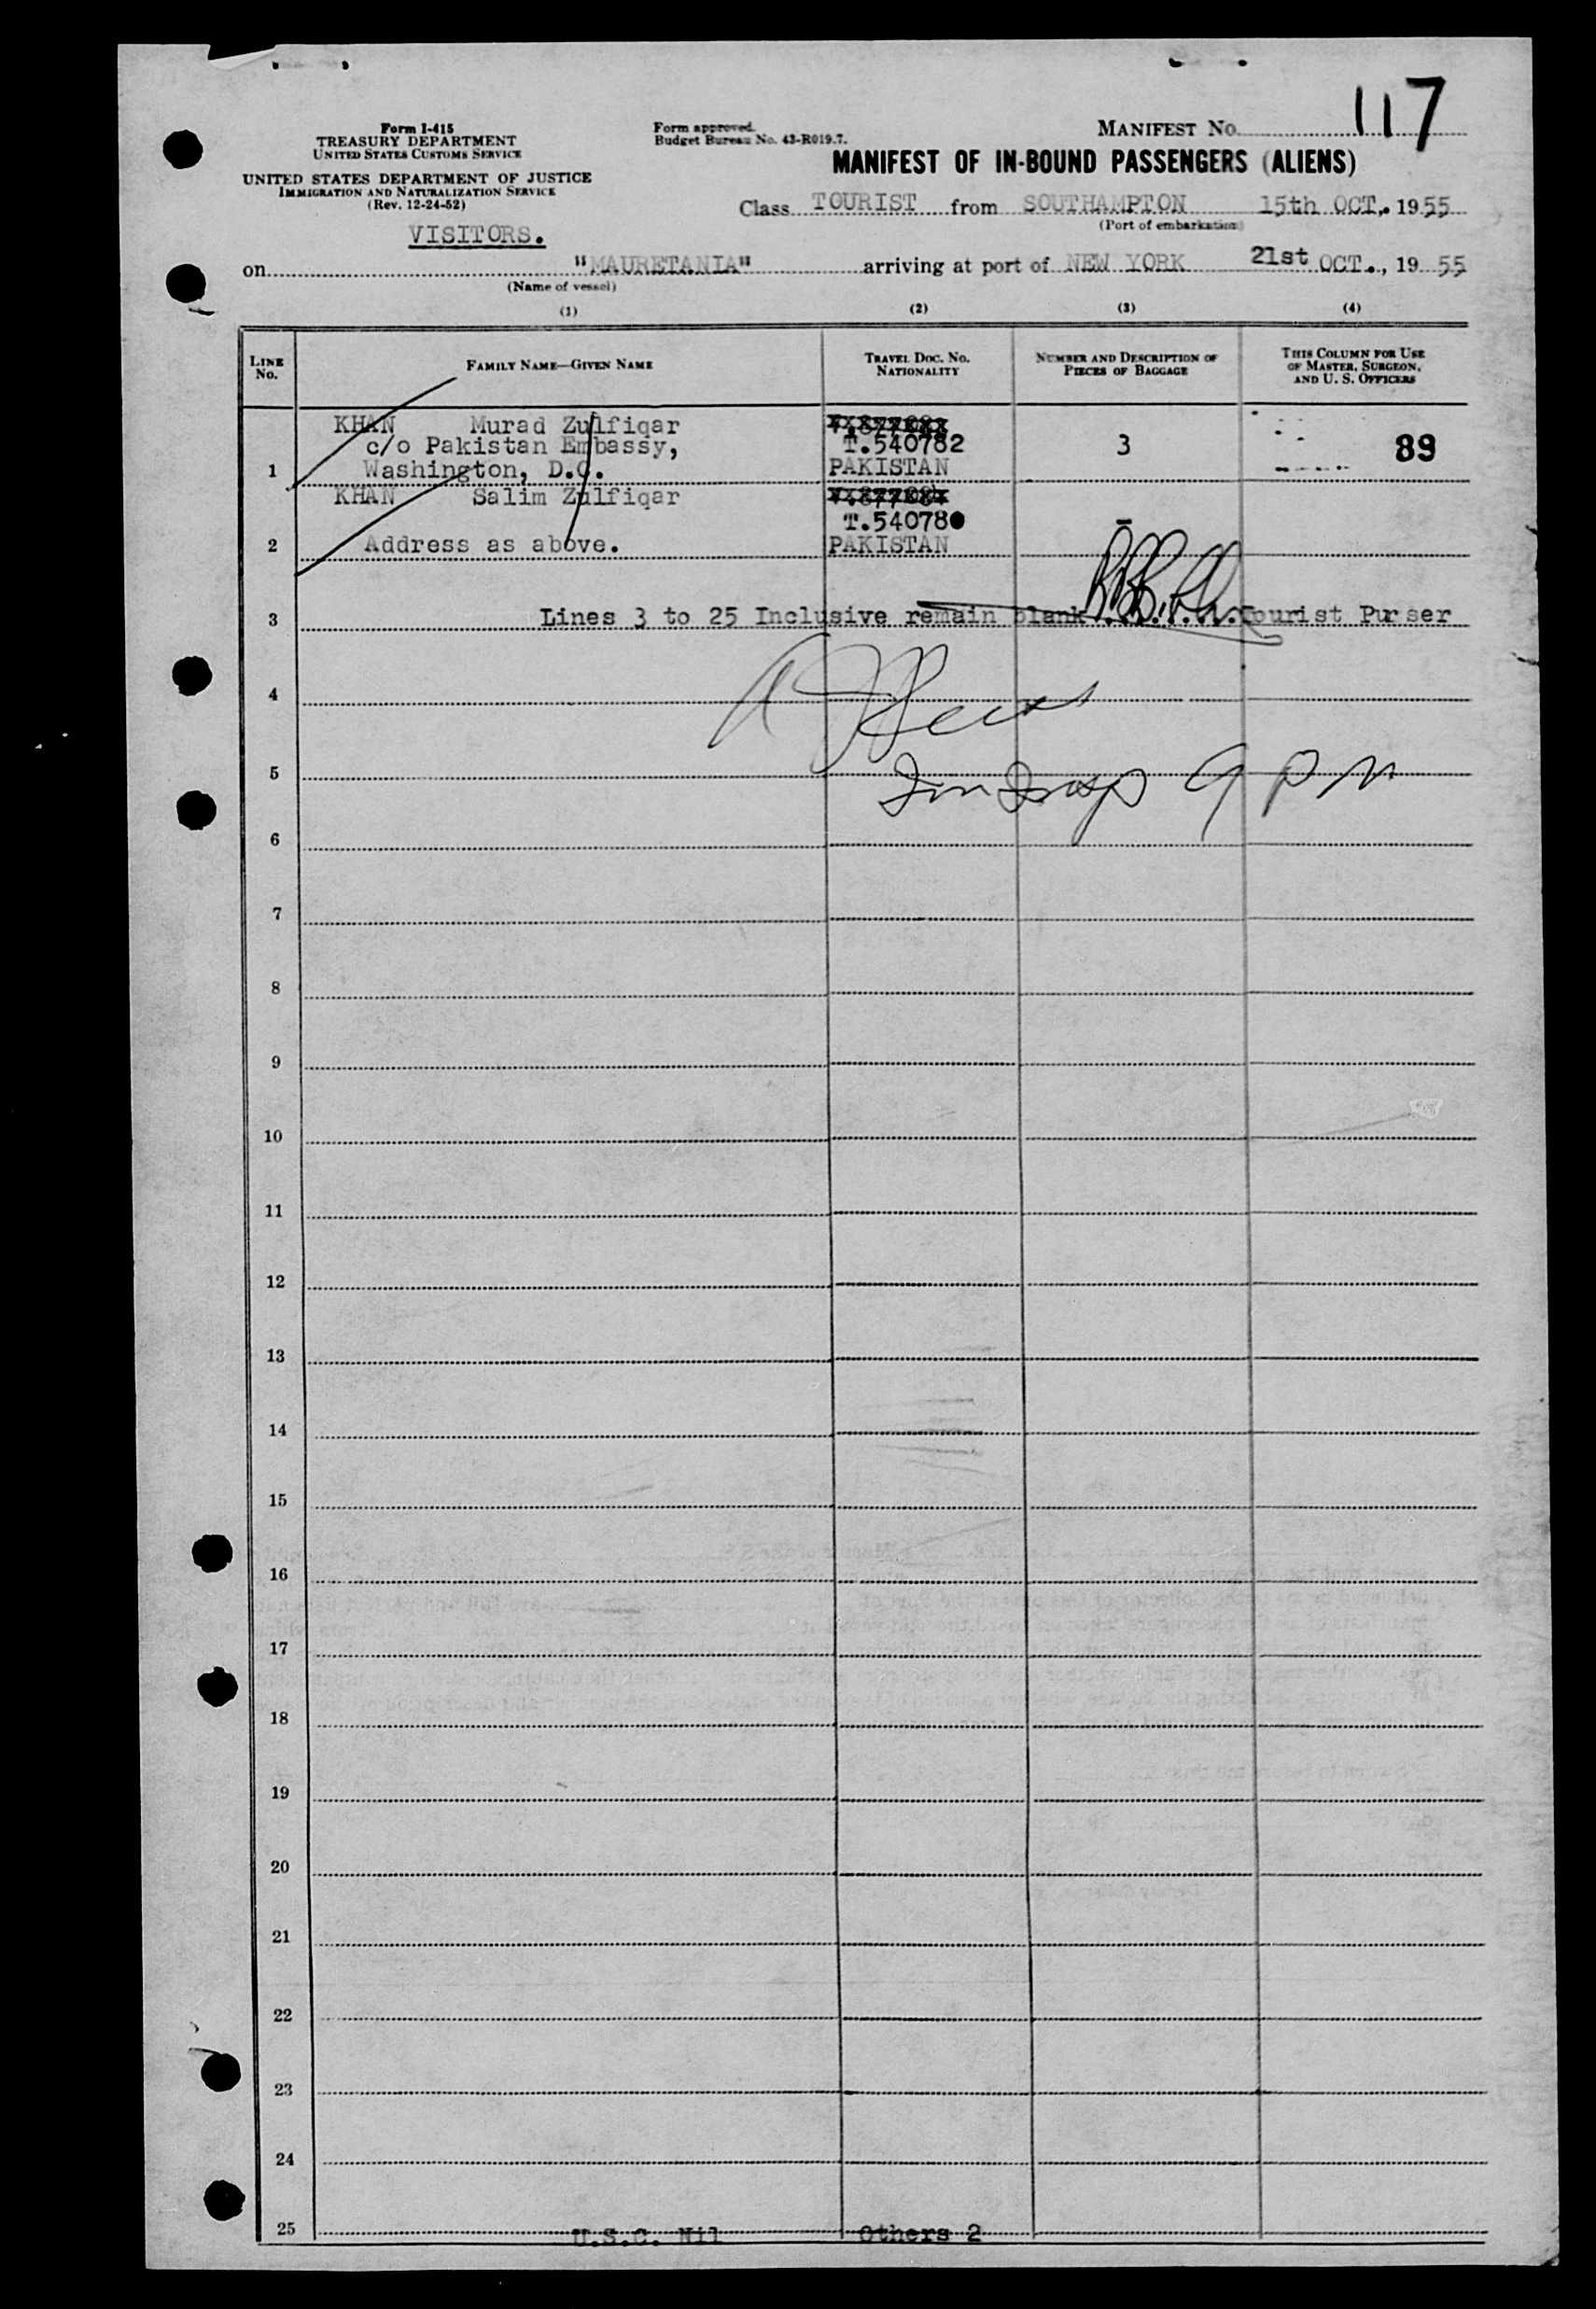 117
Form I-415
TREASURY DEPARTMENT
UNITED STATES CUSTOMS SERVICE
UNITED STATES DEPARTMENT OF JUSTICE
IMMIGRATION AND NATURALIZATION SERVICE
(Rev. 12-24-52)
VISITORS.
Form approved.
Budget Bureau No. 43-R019.7.
MANIFEST NO.
MANIFEST OF IN-BOUND PASSENGERS (ALIENS)
Class TOURIST from SOUTHAMPTON 15th OCT., 1955
(Port of embarkation)
on "MAURETANIA" arriving at port of NEW YORK 21st OCT., 1955
(Name of vessel)
(1) (2) (3) (4)
LINE NO.
FAMILY NAME—GIVEN NAME
TRAVEL DOC. NO.
NATIONALITY
NUMBER AND DESCRIPTION OF
PIECES OF BAGGAGE
THIS COLUMN FOR USE
OF MASTER, SURGEON,
AND U. S. OFFICERS
KHAN Murad Zulfiqar
c/o Pakistan Embassy, T.540782 3 89
1 Washington, D.C. PAKISTAN
KHAN Salim Zulfiqar
T.540780
2 Address as above. PAKISTAN
3 Lines 3 to 25 Inclusive remain blank Tourist Purser
4
5
Imm Insp 9 PM
6
7
8
9
10
11
12
13
14
15
16
17
18
19
20
21
22
23
24
25 U.S.C. Nil Others 2